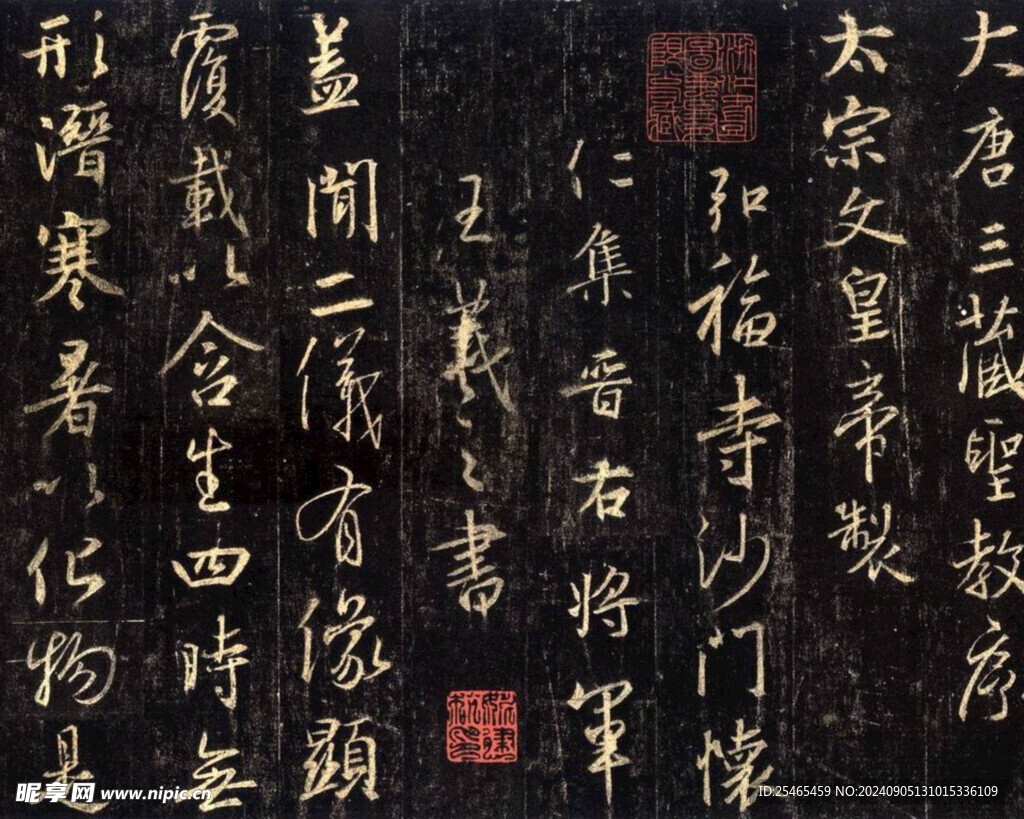 大唐三藏聖教序
太宗文皇帝製
弘福寺沙門懷
仁集晉右將軍
王羲之書
蓋聞二儀有像顯
覆載以含生四時無
形潛寒暑以化物是
昵享网 www.nipic.cn
ID:25465459 NO:20240905131015336109